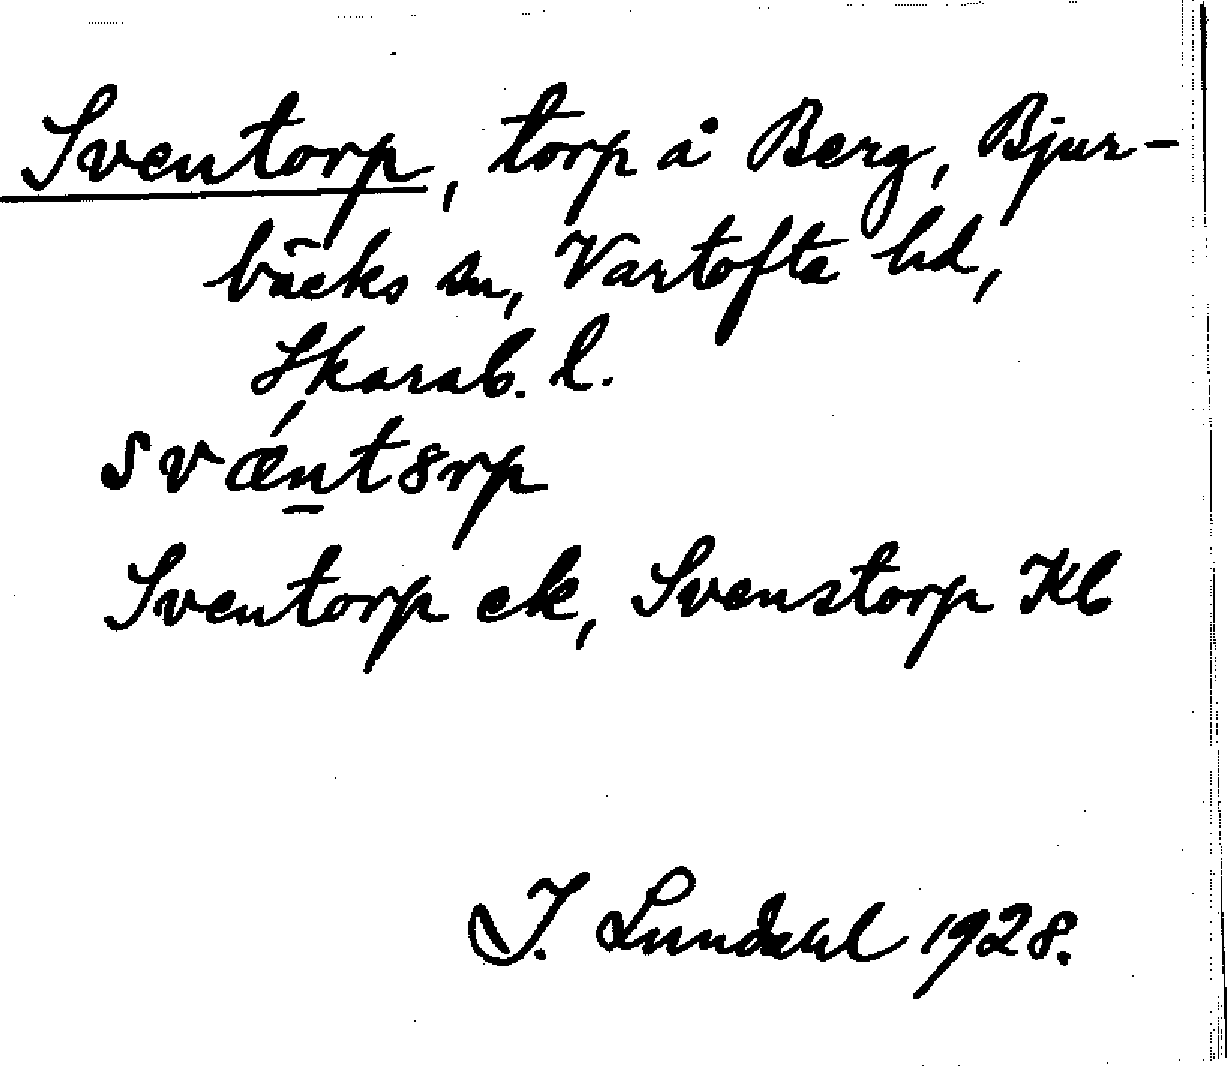 Sventorp, torp å Berg, Bjur-
bäcks sn, Vartofta hd,
Skarab. l.
svǽn̲t8rp
Sventorp ek, Svenstorp Kb
I. Lundahl 1928.